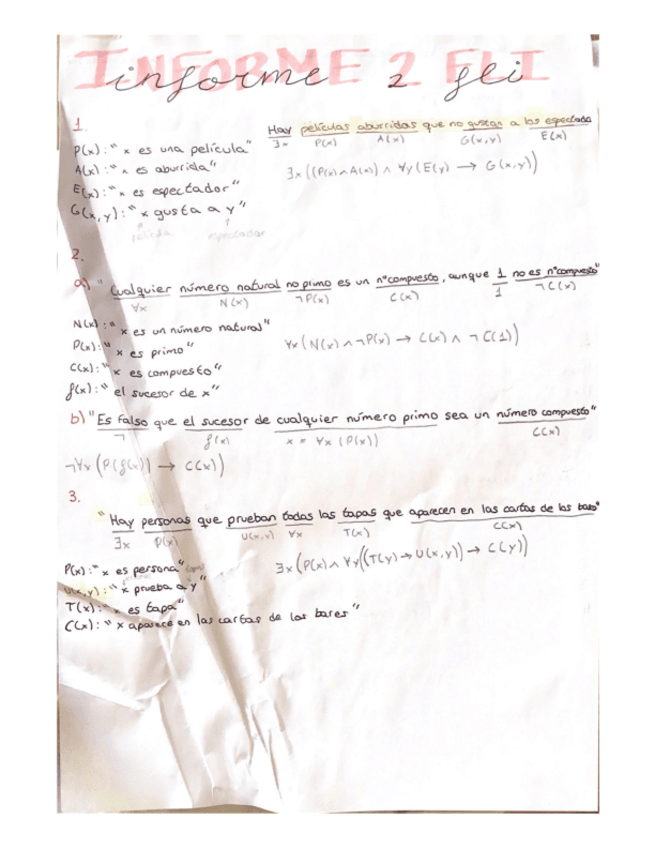 INFORME 2 FLI
informe 2 fli
1.
Hay películas aburridas que no gustan a los espectado
∃x P(x) A(x) G(x,y) E(x)
P(x): " x es una película"
A(x): " x es aburrida"
∃x((P(x)∧A(x)) ∧ ∀y(E(y) → G(x,y))
E(x): " x es espectador"
G(x,y): "x gusta a y"
película espectador
2.
a) " Cualquier número natural no primo es un nºcompuesto, aunque 1 no es nºcompuesto"
∀x N(x) ¬P(x) C(x) 1 ¬C(x)
N(x): " x es un número natural"
P(x): " x es primo"
∀x(N(x)∧¬P(x) → C(x) ∧ ¬C(1))
C(x): " x es compuesto"
f(x): " el sucesor de x"
b) "Es falso que el sucesor de cualquier número primo sea un número compuesto"
¬ f(x) x = ∀x (P(x)) C(x)
¬∀x(P(f(x)) → C(x))
3.
" Hay personas que prueban todas las tapas que aparecen en las cartas de los bares"
∃x P(x) U(x,y) ∀x T(x) C(x)
P(x): " x es persona"
∃x(P(x)∧ ∀y((T(y)→U(x,y)) → C(y))
U(x,y): " x prueba a y"
T(x): " x es tapa"
C(x): " x aparece en las cartas de los bares"